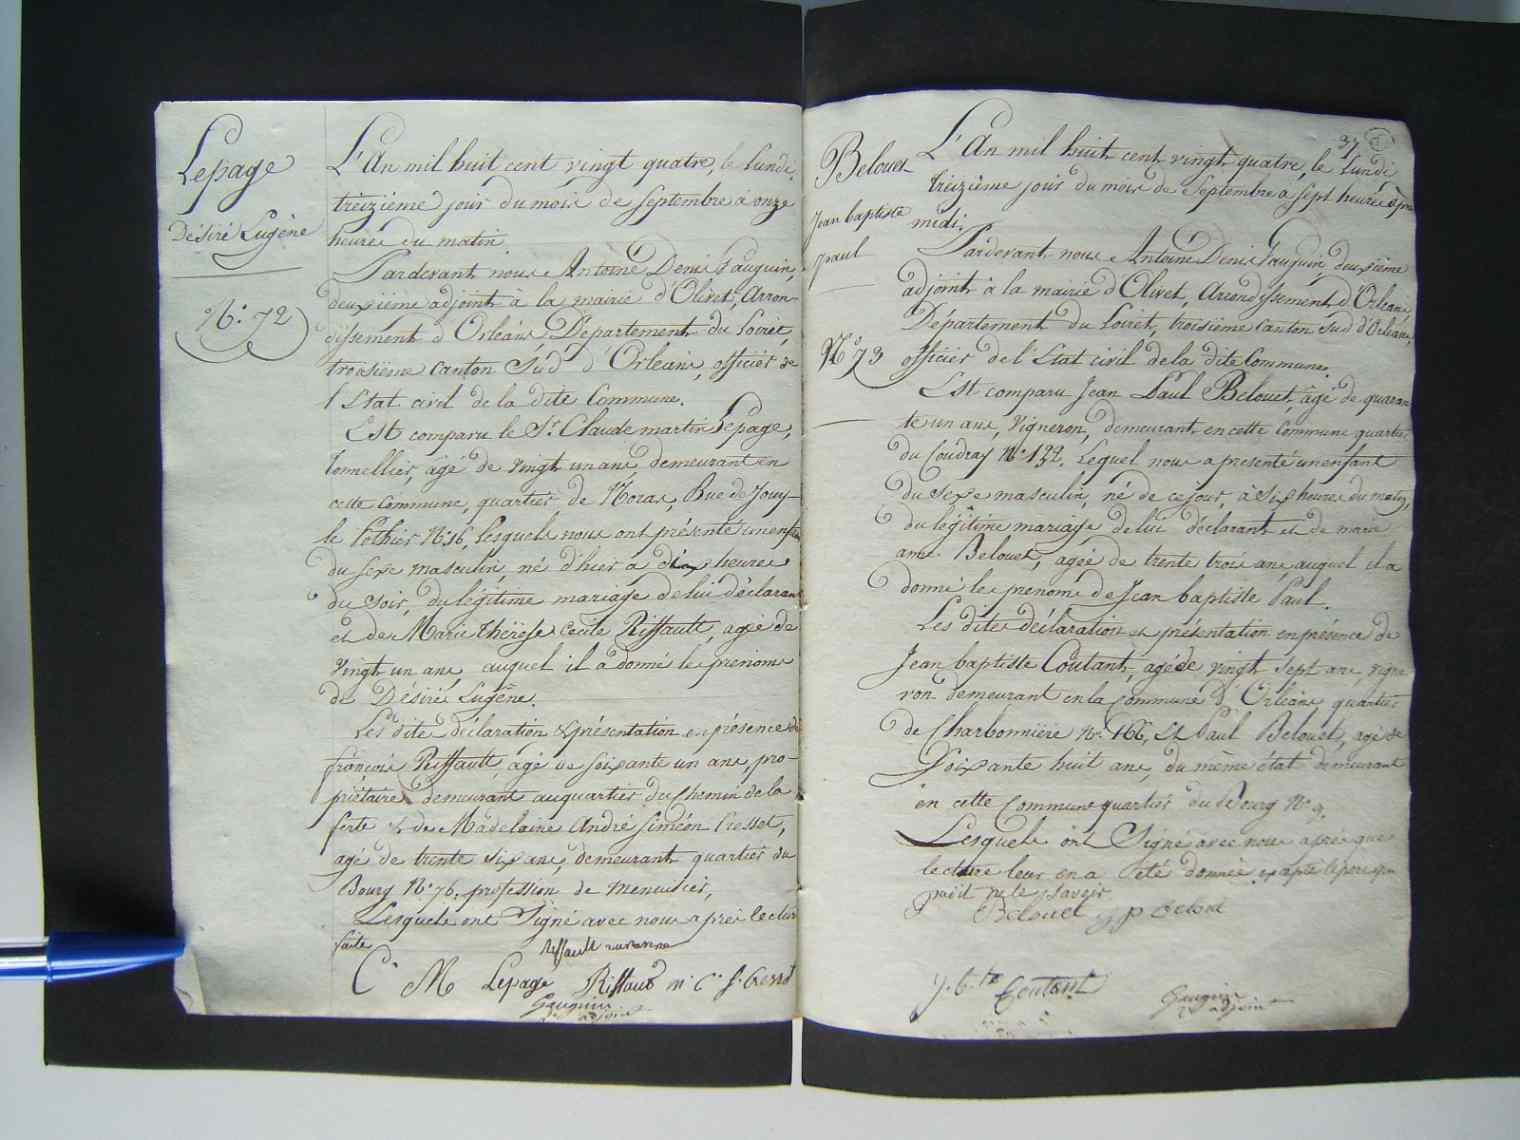 Lepage
Désiré Eugène
N.° 72
L'An mil huit cent vingt quatre, le lundi,
treizième jour du mois de Septembre à onze
heures du matin.
Pardevant nous Antoine Denis Gauguin,
deuxième adjoint à la mairie d'Olivet, Arron-
dissement d'Orléans Département du Loiret,
troisième Canton Sud d'Orléans, officier de
l'Etat civil de la dite Commune.
Est comparu le Sr. Claude martin Lepage,
Tonnellier, âgé de vingt un ans, demeurant en
cette Commune, quartier de Noras, Rue de Jouy-
le Pothier N.° 16, Lesquels nous ont présenté un enfan
du sexe masculin, né d'hier à dix heures
du soir, du légitime mariage de lui déclarant
et de Marie Thérèse Cecile Riffault, agée de
vingt un ans, auquel il a donné les prenoms
de Désiré Eugène.
Les dites déclaration & présentation en présence de
françois Riffault, agé de soixante un ans, pro-
priétaire demeurant au quartier du Chemin de la
ferte & de Madelaine André Siméon Cresset,
agé de trente six ans, demeurant quartier du
Bourg N.° 76. profession de menuisier,
Lesquels ont Signé avec nous après lecture
faite
Riffault
C. M Lepage Riffault m. c. s. Cresset
Gauguin
2e adjoint
37
Belouet
Jean baptiste
paul
N.° 73
L'An mil huit cent vingt quatre, le Lundi
treizième jour du mois de Septembre à sept heures après
midi.
Pardevant nous Antoine Denis Gauguin, deuxième
adjoint à la mairie d'Olivet, Arrondissement d'Orléans,
Département du Loiret, troisième canton Sud d'Orléans,
officier de l'Etat civil de la dite Commune.
Est comparu Jean Paul Belouet, âgé de quaran
te un ans, Vigneron, demeurant en cette Commune quartier
du Coudray N.° 132. Lequel nous a presenté un enfant
du sexe masculin, né de ce jour, à Six heures du matin,
du légitime mariage de lui déclarant et de marie
anne Belouet, agée de trente trois ans, auquel il a
donné les prenoms de Jean baptiste Paul.
Les dites déclaration et présentation en présence de
Jean baptiste Coutant, agé de vingt Sept ans, vigne
ron demeurant en la Commune d'Orléans quartier
de Charbonnière N.° 166, Et Paul Belouet, agé de
Soixante huit ans, du même état demeurant
en cette Commune quartier du Bourg N.° 9.
Lesquels ont Signé avec nous après que
lecture leur en a été donnée, excepté le père qui
a dit ne le savoir
Belouet
J. b.te Coutant
Gauguin
2e adjoint